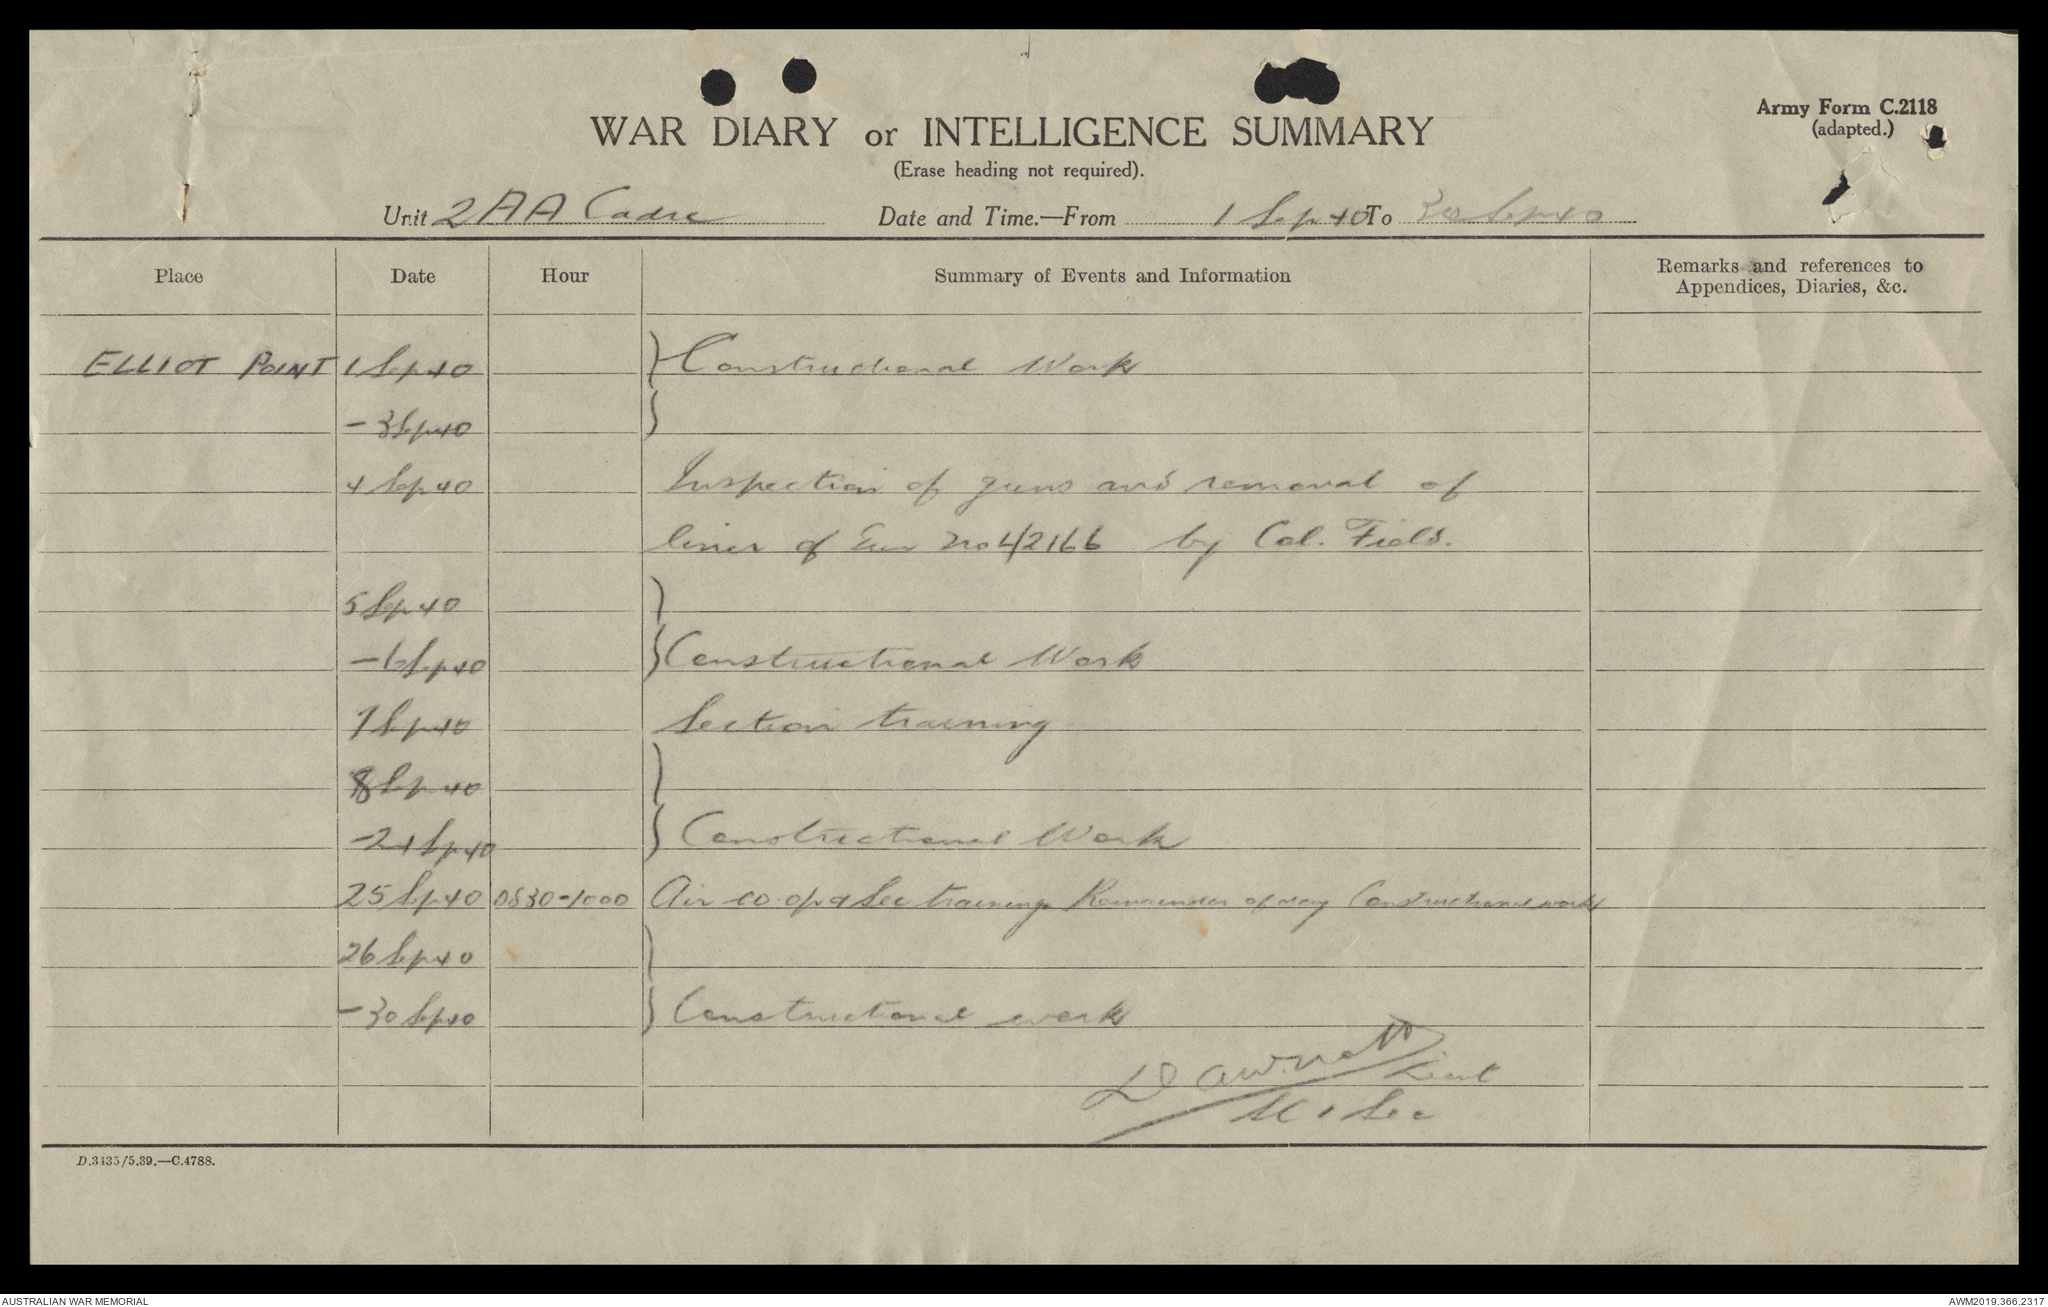 Army Form C.2118
(adapted.)
WAR DIARY or INTELLIGENCE SUMMARY
(Erase heading not required).
Unit 2 AA Cadre Date and Time.—From 1 Sep 40 To 30 Sep 40
Place Date Hour Summary of Events and Information Remarks and references to
Appendices, Diaries, &c.
ELLIOT POINT 1 Sep 40 } Constructional Work
- 3 Sep 40 }
4 Sep 40 Inspection of guns and removal of
liner of Gun No 4/2166 by Col. Field.
5 Sep 40 }
- 6 Sep 40 } Constructional Work
7 Sep 40 Section training
8 Sep 40 }
- 24 Sep 40 } Constructional Work
25 Sep 40 0830-1000 Air co-op & Sec training. Remainder of day Constructional work
26 Sep 40 }
- 30 Sep 40 } Constructional work
Lieut
1 Sec
D.3435/5.39.—C.4788.
AUSTRALIAN WAR MEMORIAL
AWM2019.366.2317